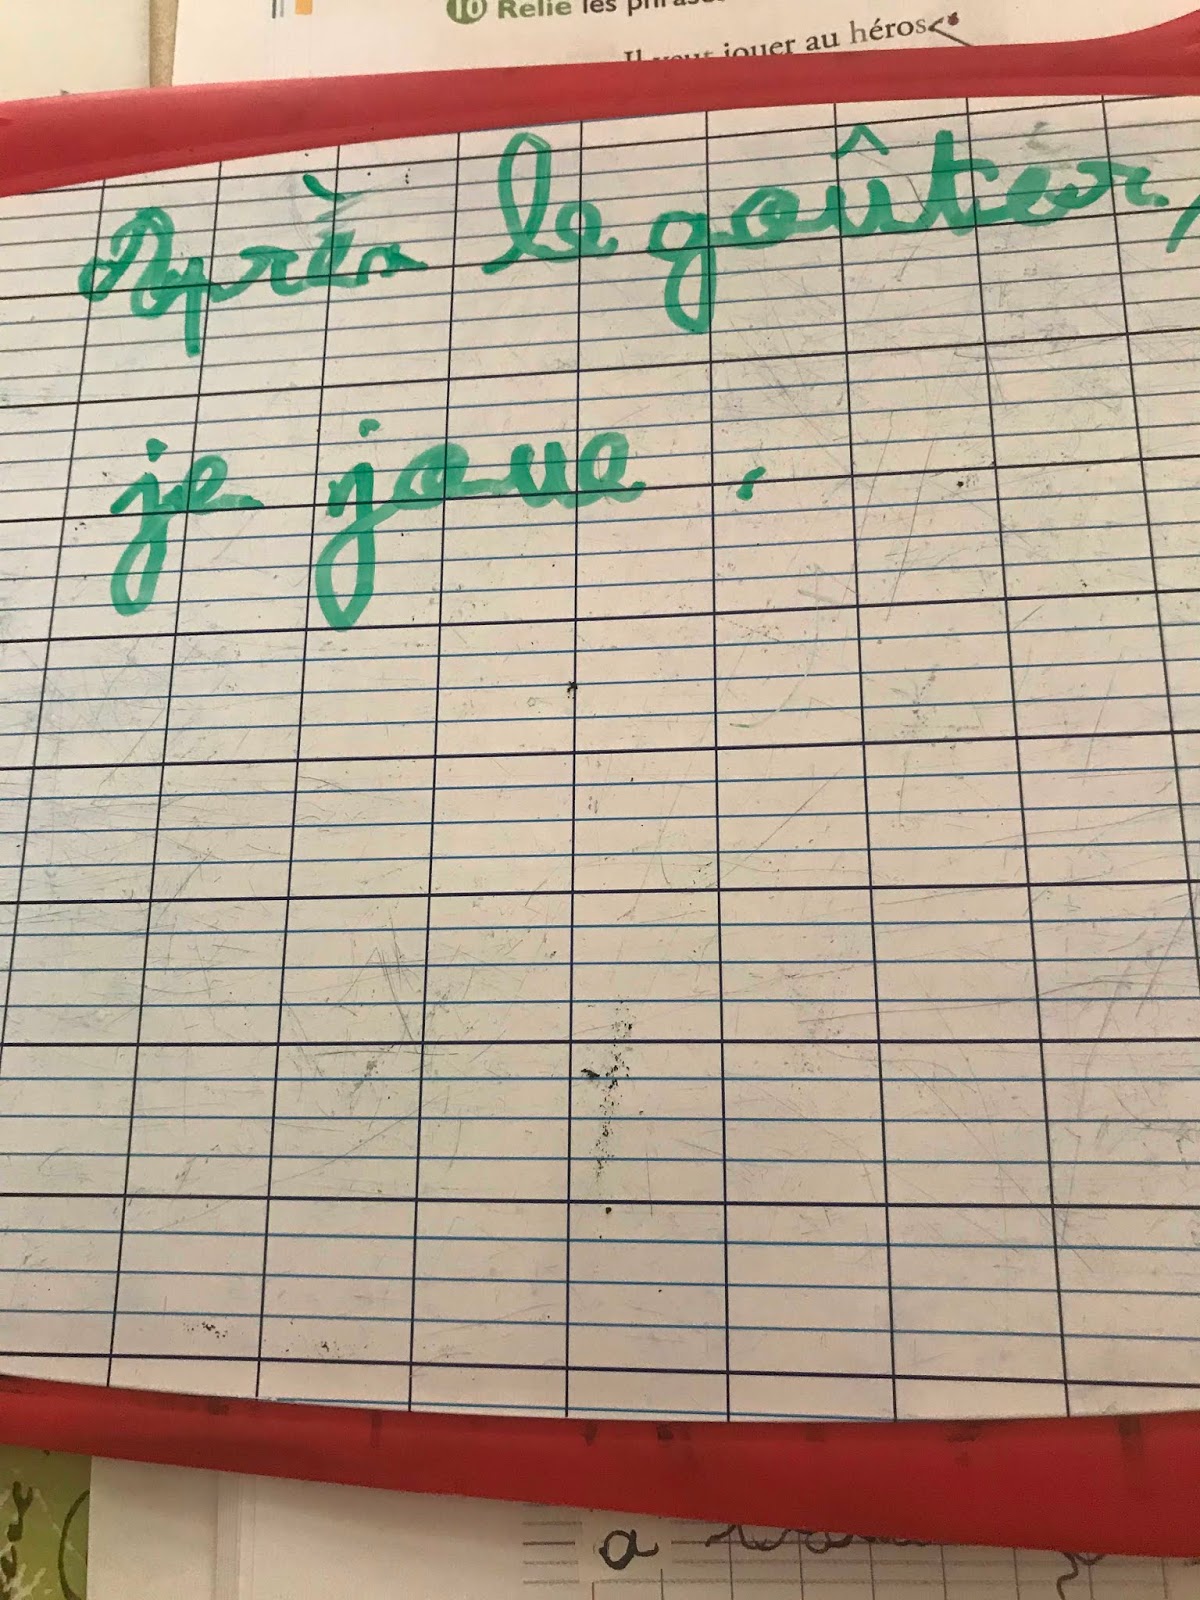 10 Relie les phrases
Il veut jouer au héros
Après le goûter,
je joue.
a